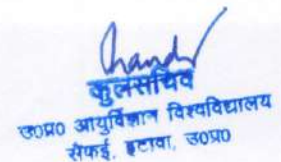 कुलसचिव
उ०प्र० आयुर्विज्ञान विश्वविद्यालय
सैफई, इटावा, उ०प्र०